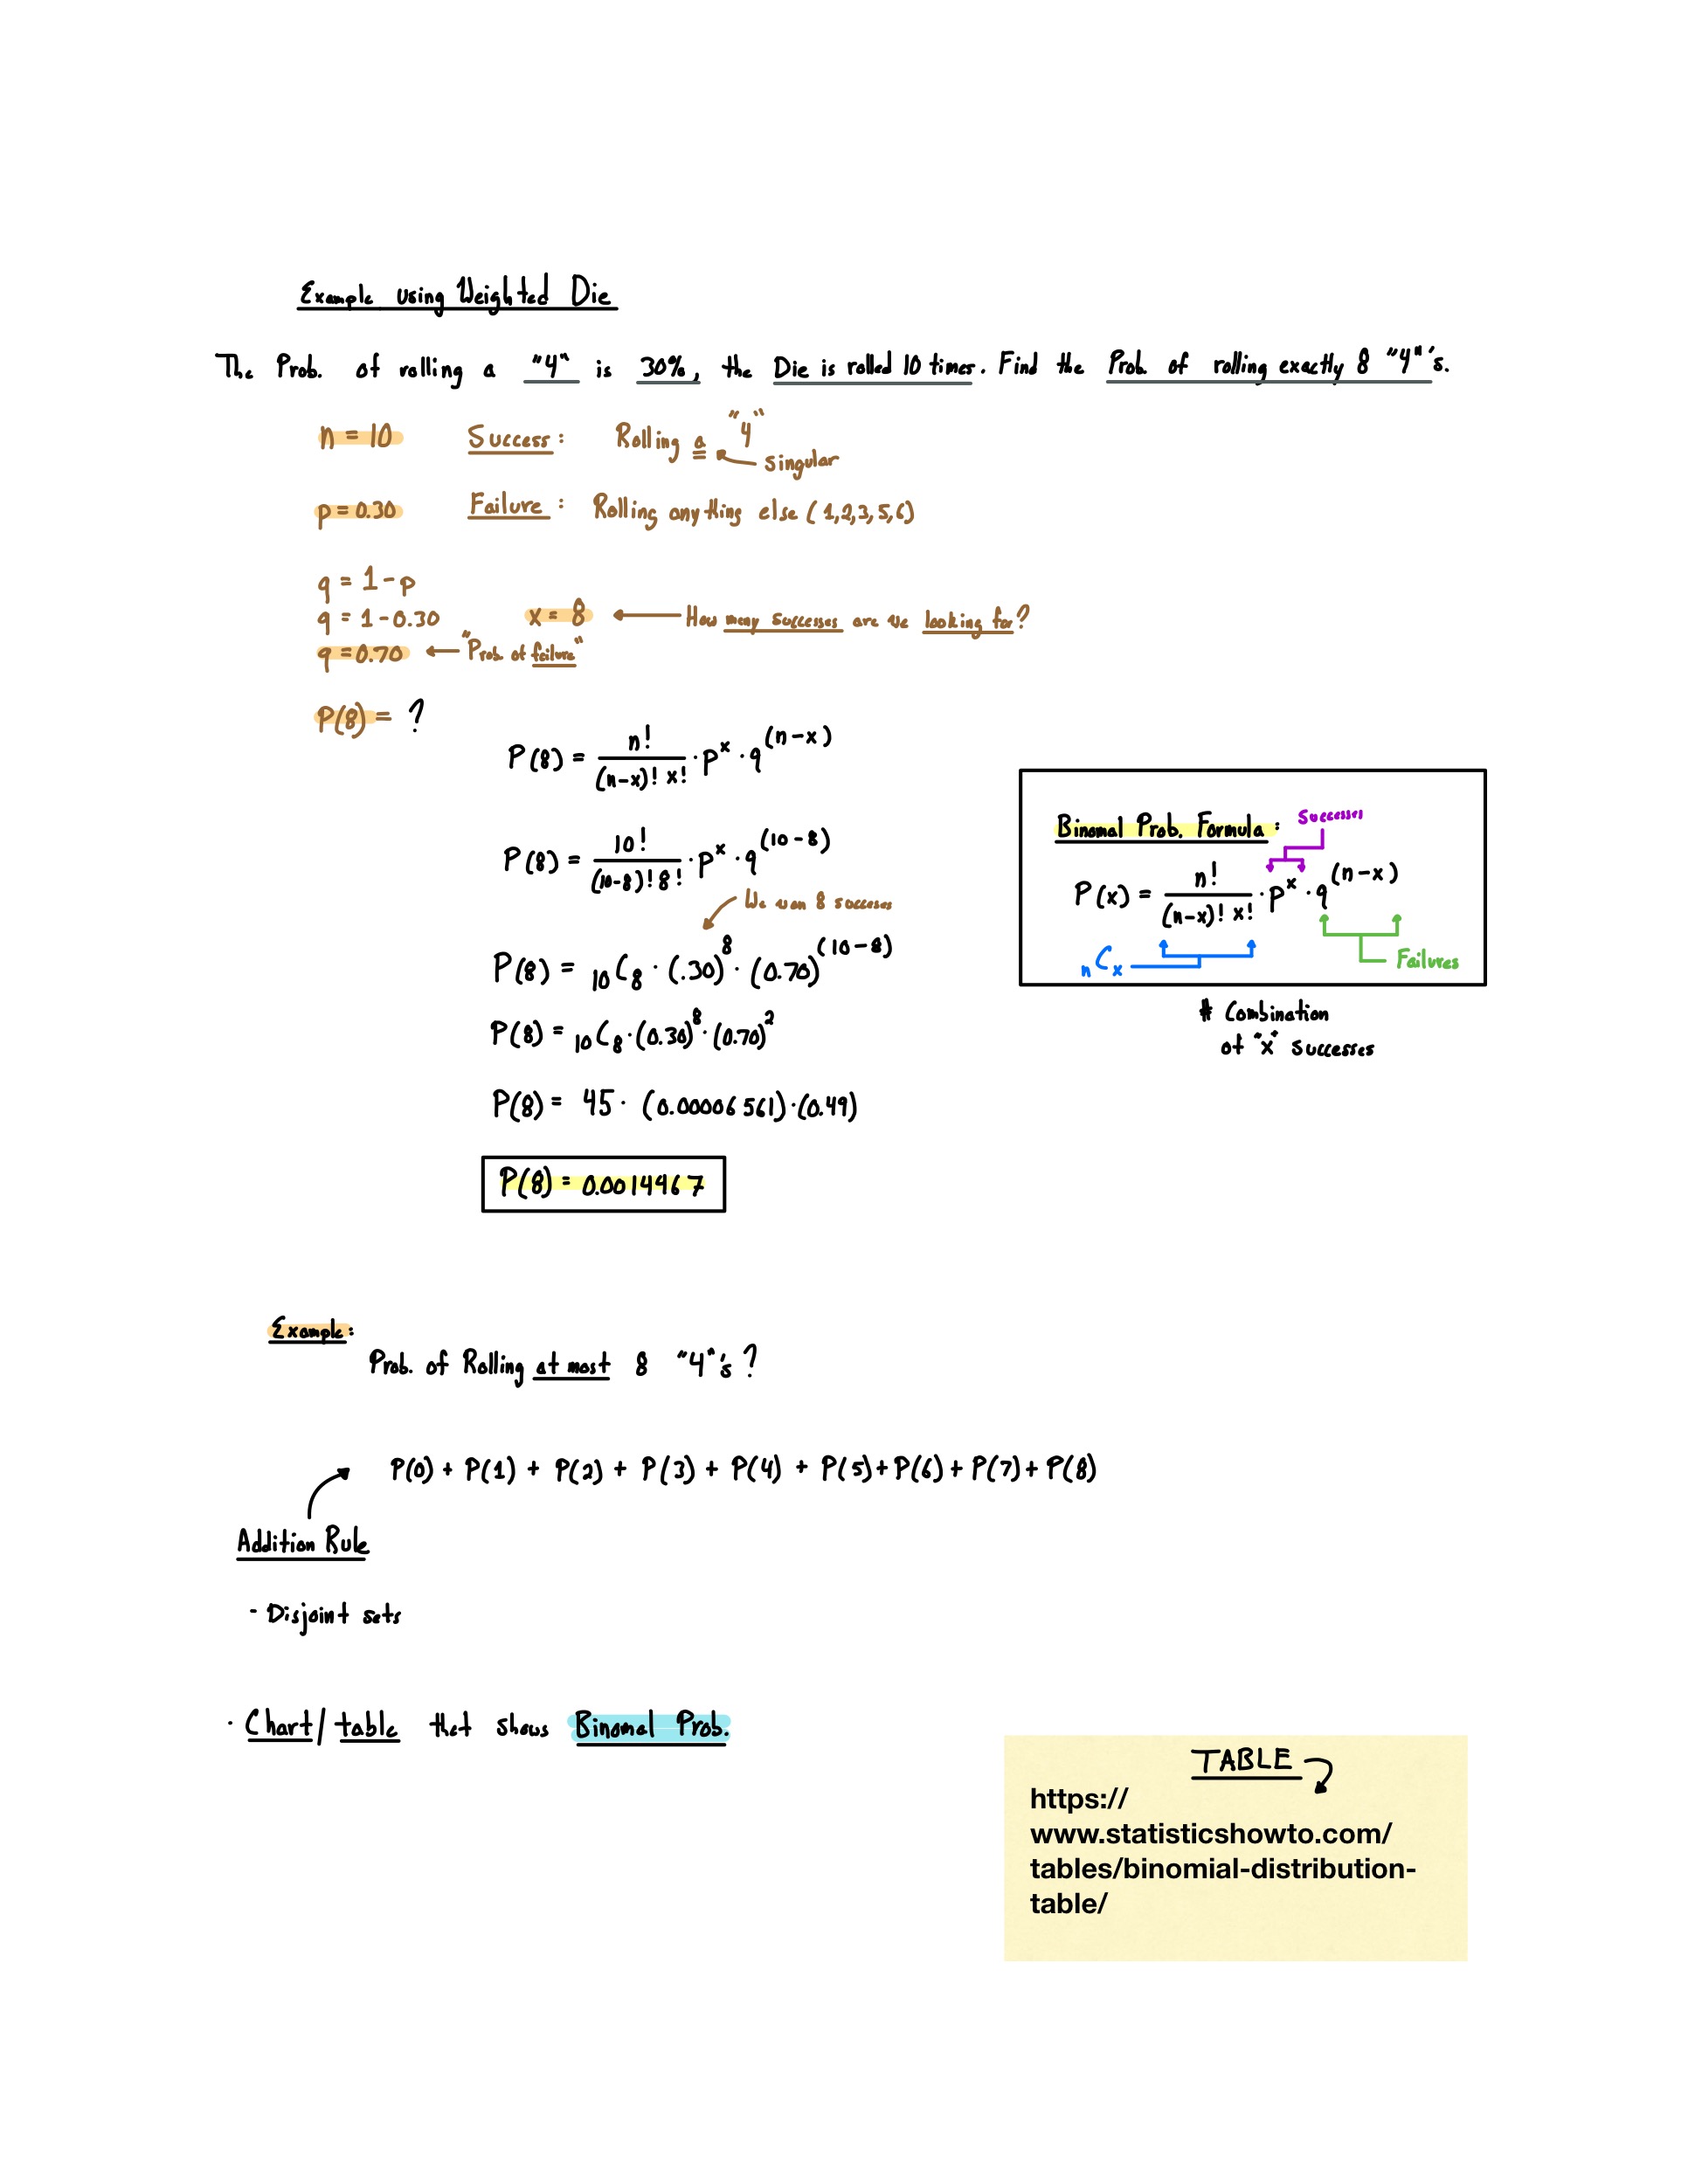 Example using Weighted Die
The Prob. of rolling a "4" is 30%, the Die is rolled 10 times. Find the Prob. of rolling exactly 8 "4"'s.
n = 10 Success: Rolling a "4"
singular
p = 0.30 Failure: Rolling anything else (1,2,3,5,6)
q = 1 - p
q = 1 - 0.30 x = 8 ← How many successes are we looking for?
q = 0.70 ← "Prob. of failure"
P(8) = ?
P(8) = n! / (n-x)! x! · p^x · q^(n-x)
P(8) = 10! / (10-8)! 8! · p^x · q^(10-8)
We wan 8 succeses
P(8) = 10C8 · (.30)^8 · (0.70)^(10-8)
P(8) = 10C8 · (0.30)^8 · (0.70)^2
P(8) = 45 · (0.00006561) · (0.49)
P(8) = 0.0014467
Binomal Prob. Formula:
Successes
P(x) = n! / (n-x)! x! · p^x · q^(n-x)
nCx
Failures
# Combination
of "x" successes
Example:
Prob. of Rolling at most 8 "4"'s?
P(0) + P(1) + P(2) + P(3) + P(4) + P(5) + P(6) + P(7) + P(8)
Addition Rule
- Disjoint sets
· Chart/table that shows Binomal Prob.
TABLE
https://
www.statisticshowto.com/
tables/binomial-distribution-
table/